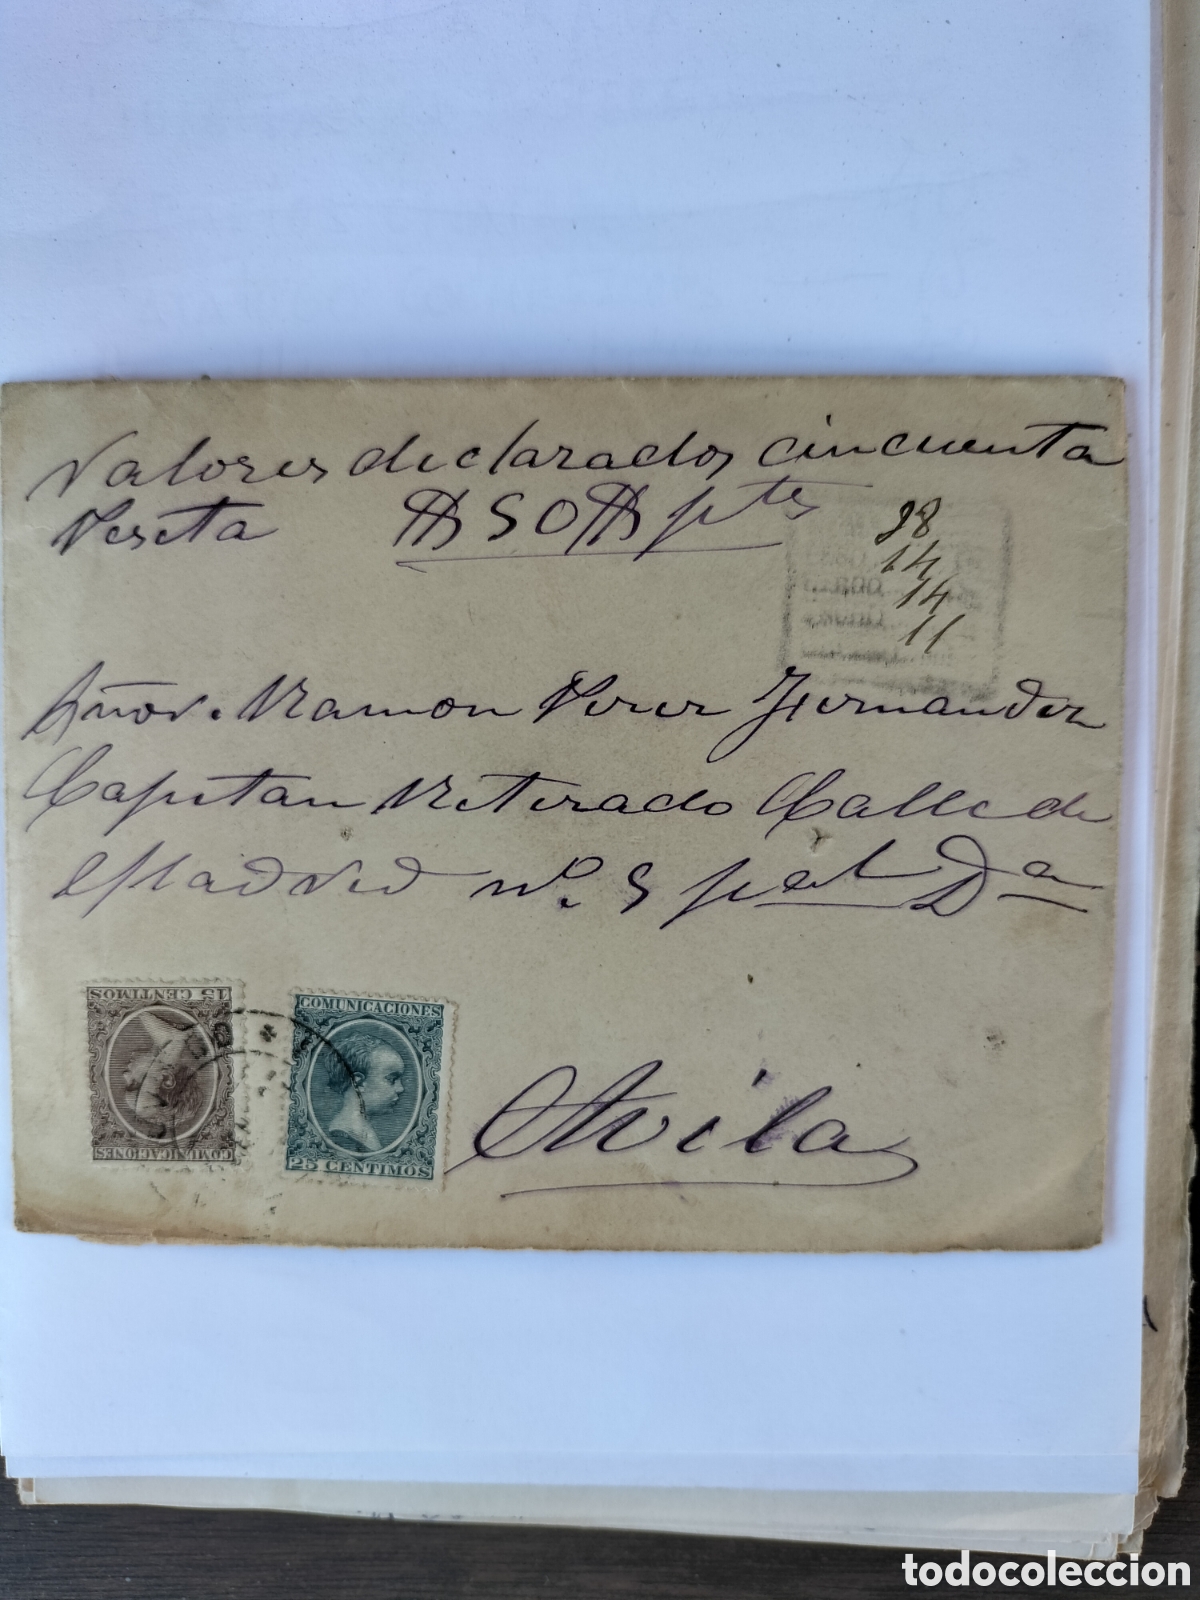 Valores declarados cincuenta
Peseta #50# ptes
28
14
14
11
Señor. Ramon Perez Hernandez
Capitan Retirado Calle de
Madrid nº. 5 pral Dª
15 CENTIMOS
COMUNICACIONES
COMUNICACIONES
25 CENTIMOS
Avila
todocoleccion